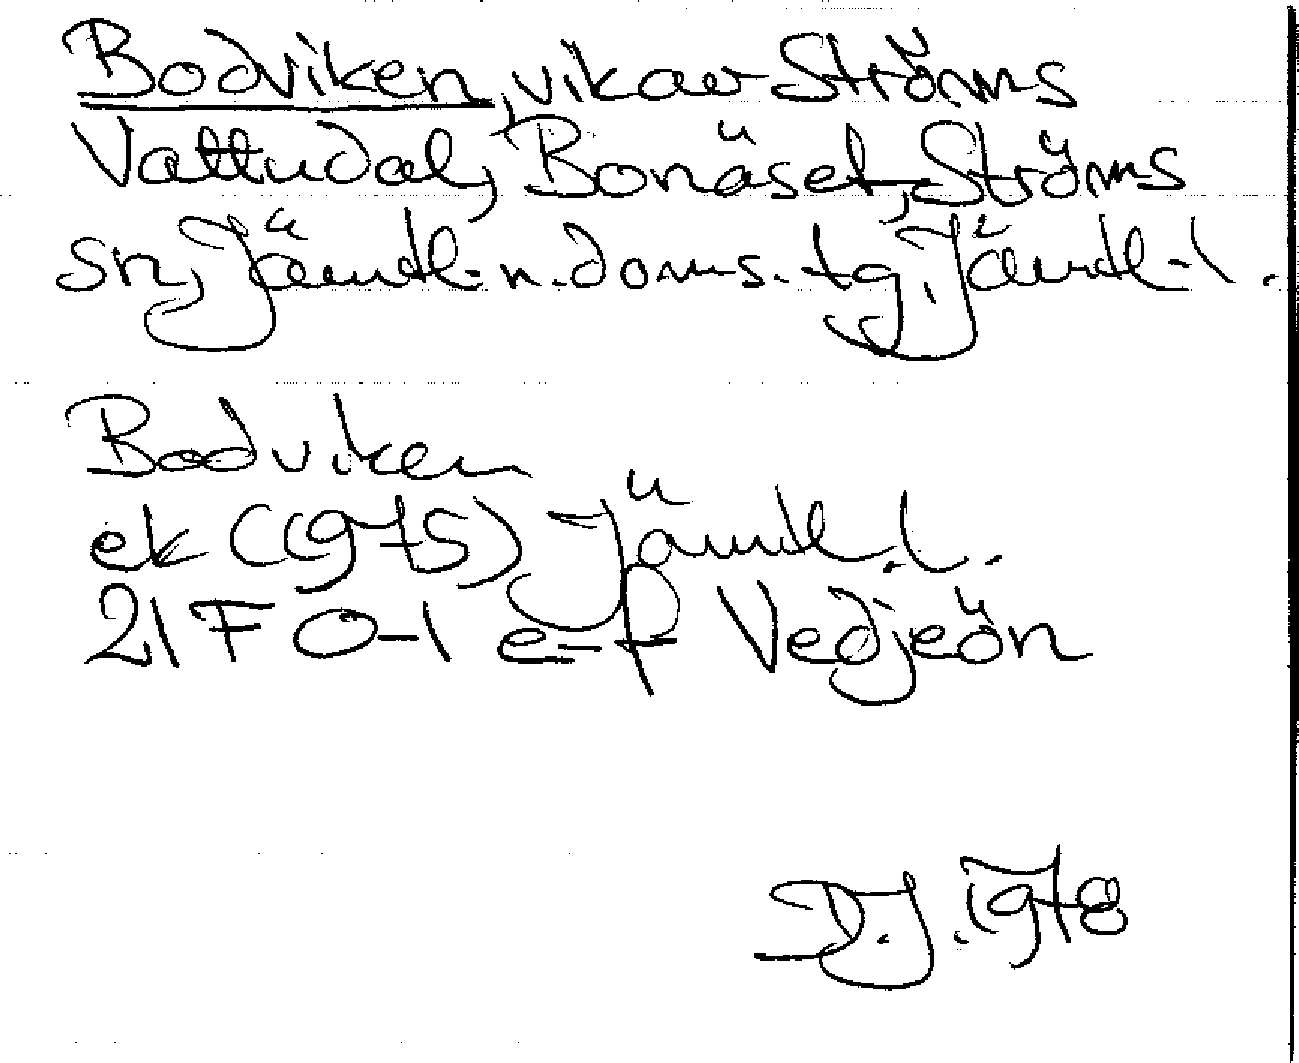 Bodviken, vik av Ströms
Vattudal, Bonäset, Ströms
sn, Jämtl. n. doms. tg, Jämtl. l.
Bodviken
ek (1975) Jämtl. l.
21F 0-1 e-f Vedjeön
D.J. 1978